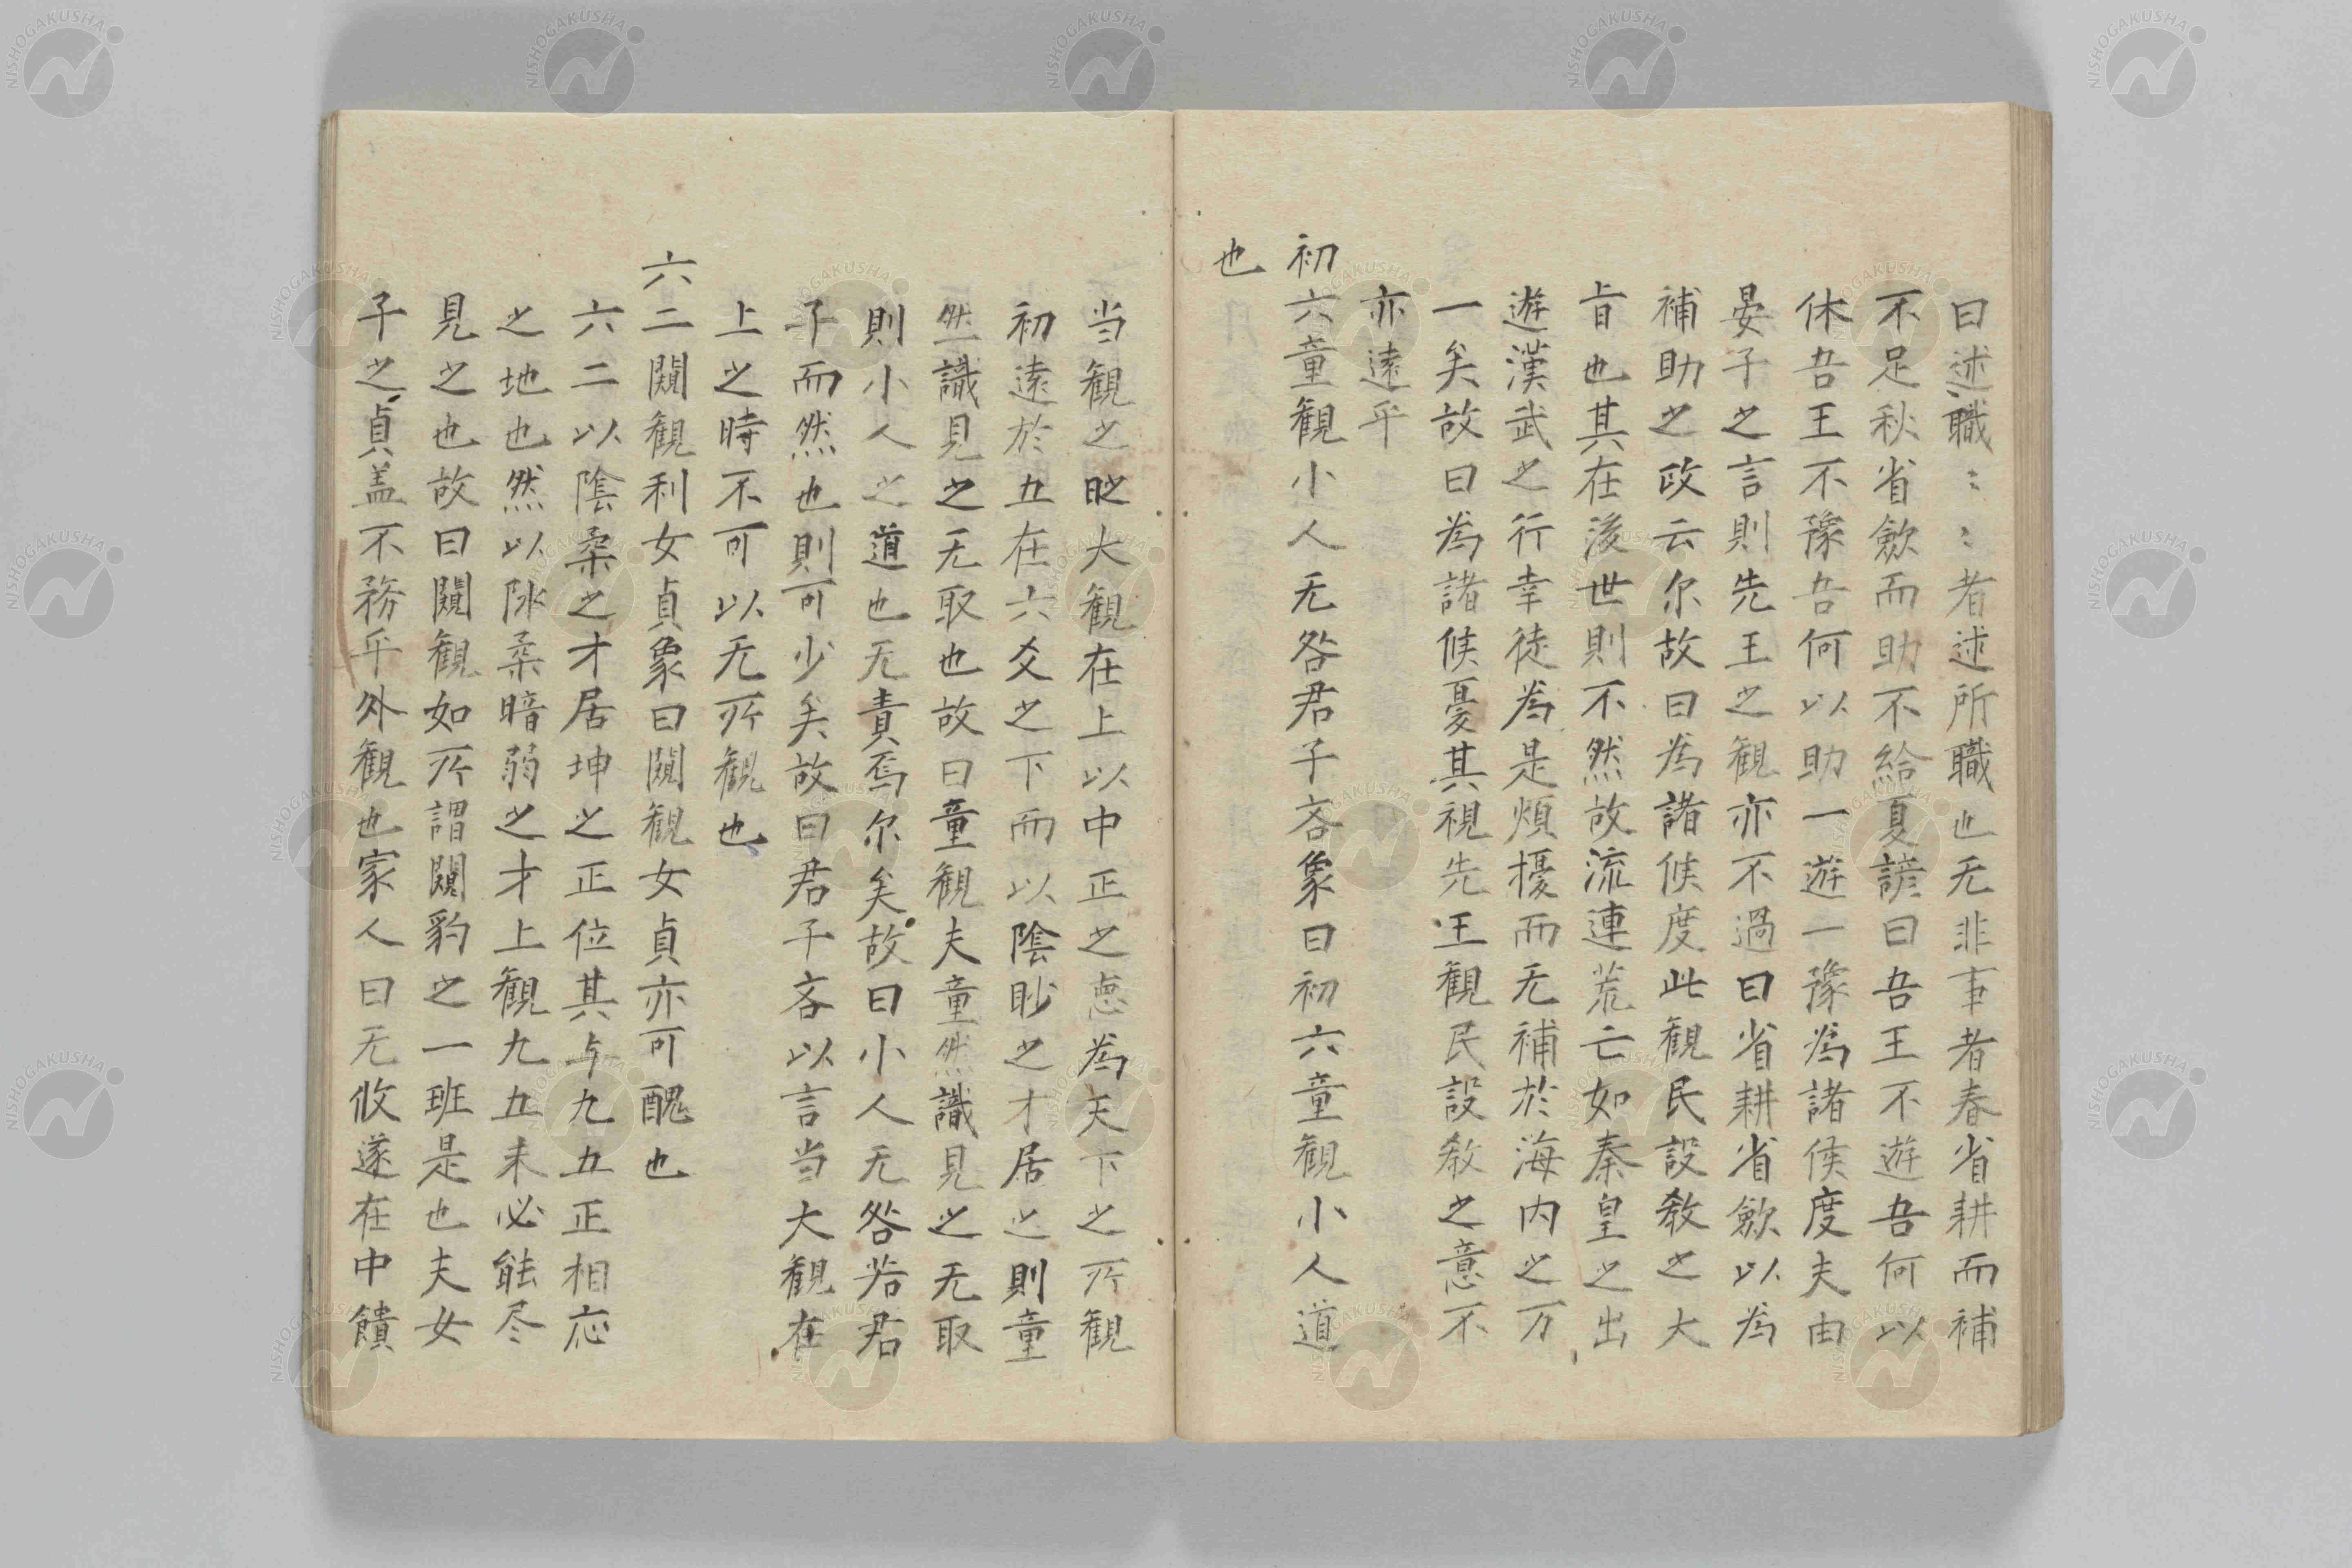 曰述職〻〻者述所職也无非事者春省耕而補
不足秋省斂而助不給夏諺曰吾王不遊吾何以
休吾王不豫吾何以助一遊一豫為諸侯度夫由
晏子之言則先王之観亦不過曰省耕省斂以為
補助之政云尔故曰為諸侯度此観民設教之大
旨也其在後世則不然故流連荒亡如秦皇之出
遊漢武之行幸徒為是煩擾而无補於海内之万
一矣故曰為諸侯憂其視先王観民設教之意不
亦遠乎
初六童観小人无咎君子吝象曰初六童観小人道
也
当観之時大観在上以中正之悳為天下之所観
初遠於五在六爻之下而以陰眇之才居之則童
然識見之无取也故曰童観夫童然識見之无取
則小人之道也无責焉尔矣故曰小人无咎若君
子而然也則可少矣故曰君子吝以言当大観在
上之時不可以无所観也
六二闚観利女貞象曰闚観女貞亦可醜也
六二以陰柔之才居坤之正位其与九五正相応
之地也然以陰柔暗弱之才上観九五未必能尽
見之也故曰闚観如所謂闚豹之一班是也夫女
子之貞盖不務乎外観也家人曰无攸遂在中饋
NISHOGAKUSHA